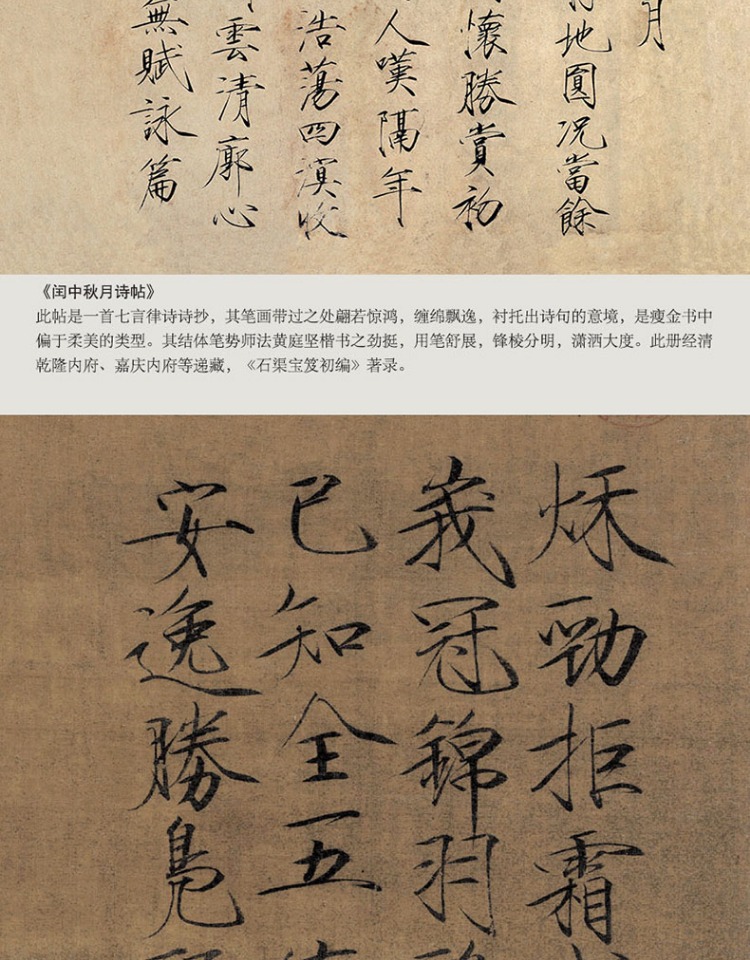 月
地圓况當餘
懷勝賞初
人嘆隔年
浩蕩四溟收
雲清廓心
無賦詠篇
《闰中秋月诗帖》
此帖是一首七言律诗诗抄，其笔画带过之处翩若惊鸿，缠绵飘逸，衬托出诗句的意境，是瘦金书中
偏于柔美的类型。其结体笔势师法黄庭坚楷书之劲挺，用笔舒展，锋棱分明，潇洒大度。此册经清
乾隆内府、嘉庆内府等递藏，《石渠宝笈初编》著录。
秌勁拒霜
峩冠錦羽
已知全五
安逸勝鳧